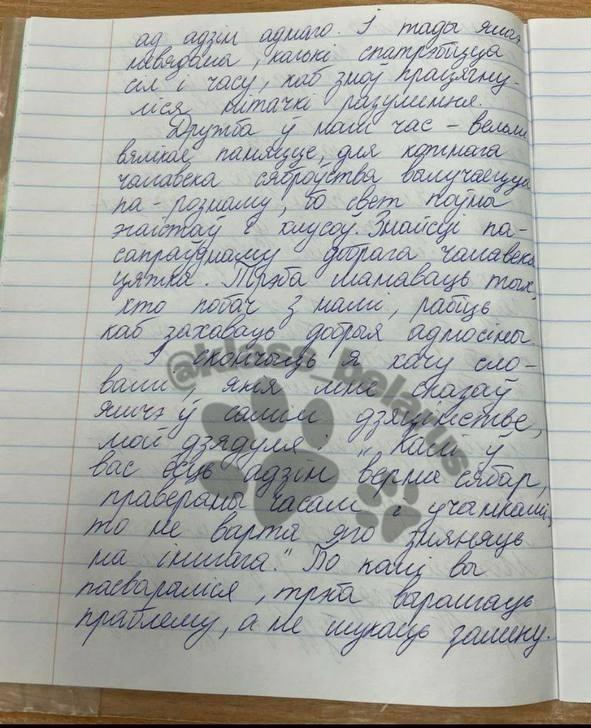 ад адзін аднаго. І тады яшчэ
невядома, колькі спатрэбіцца
сіл і часу, каб зноў працягну-
ліся нітачкі разумення.
Дружба ў наш час – вельмі
вялікае паняцце, для кожнага
чалавека сяброўства вылучаецца
па-рознаму, бо свет поўны
жастаў і хлусаў. Знайсці па-
сапраўднаму добрага чалавека
цяжка. Трэба шанаваць тых,
хто побач з намі, рабіць
каб захаваць добрыя адносіны.
І скончыць я хачу сло-
вамі, якія мне сказаў
яшчэ ў самім дзяцінстве,
мой дзядуля: „Калі ў
вас ёсць адзін верны сябар,
правераны часам і учынкамі,
то не варта яго змяняць
на іншага." Бо калі вы
пасвараліся, трэба вырашаць
праблему, а не шукаць замену.
@klass_belarus